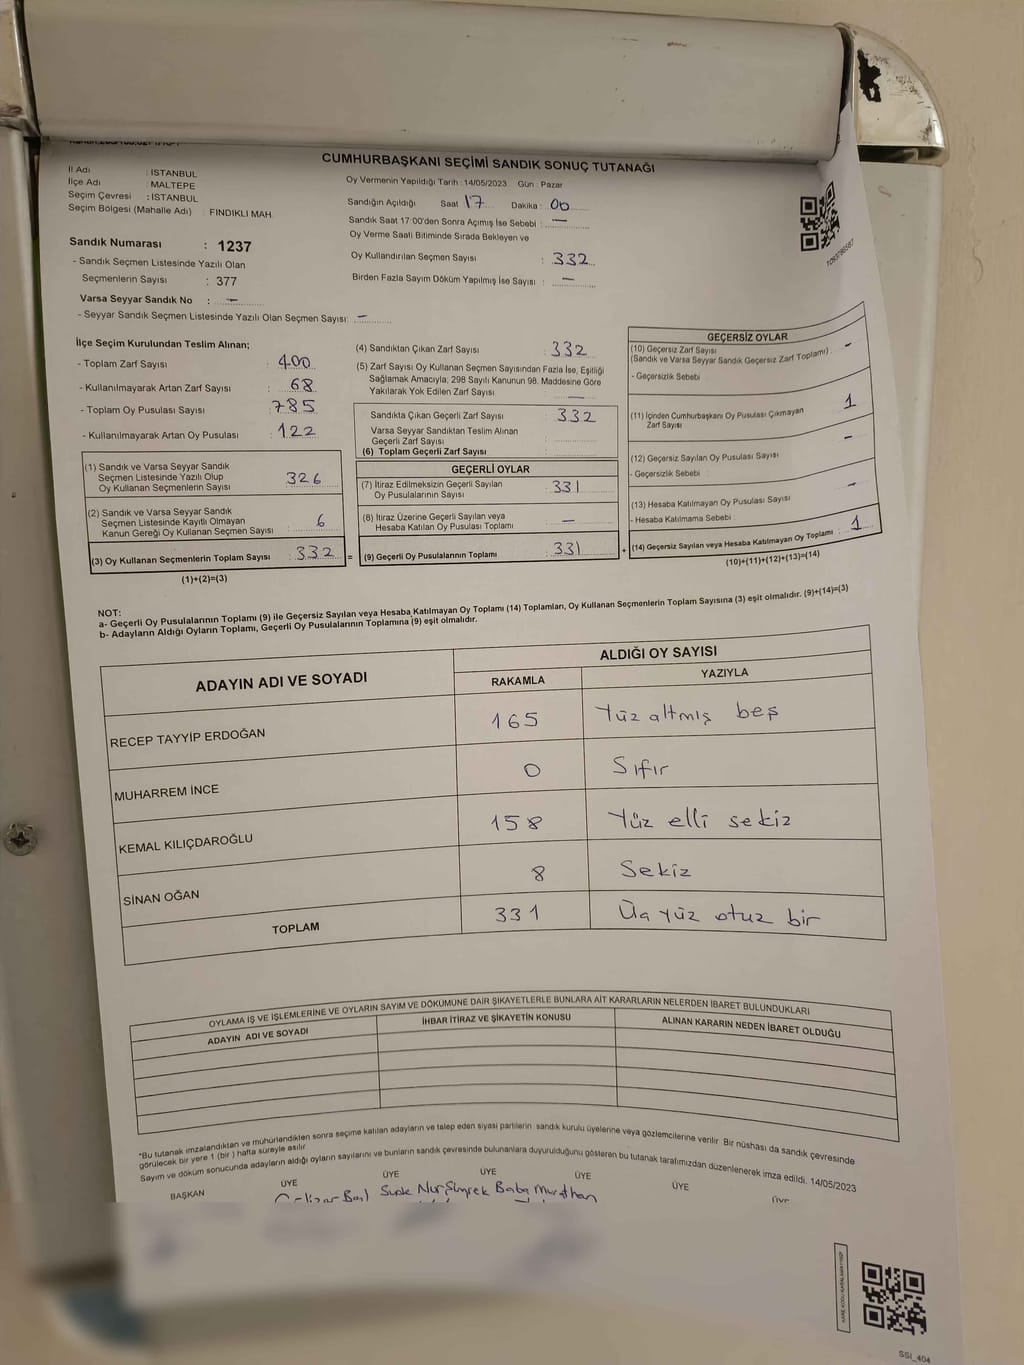 CUMHURBAŞKANI SEÇİMİ SANDIK SONUÇ TUTANAĞI
İl Adı : İSTANBUL
İlçe Adı : MALTEPE
Seçim Çevresi : İSTANBUL
Seçim Bölgesi (Mahalle Adı) : FINDIKLI MAH.
Oy Vermenin Yapıldığı Tarih : 14/05/2023 Gün : Pazar
Sandığın Açıldığı Saat 17 Dakika : 00
Sandık Saat 17:00'den Sonra Açımış İse Sebebi : —
Oy Verme Saati Bitiminde Sırada Bekleyen ve
Oy Kullandırılan Seçmen Sayısı : 332
Birden Fazla Sayım Döküm Yapılmış İse Sayısı : —
Sandık Numarası : 1237
- Sandık Seçmen Listesinde Yazılı Olan
Seçmenlerin Sayısı : 377
Varsa Seyyar Sandık No : —
- Seyyar Sandık Seçmen Listesinde Yazılı Olan Seçmen Sayısı: —
İlçe Seçim Kurulundan Teslim Alınan;
- Toplam Zarf Sayısı : 400
- Kullanılmayarak Artan Zarf Sayısı : 68
- Toplam Oy Pusulası Sayısı : 785
- Kullanılmayarak Artan Oy Pusulası : 122
(1) Sandık ve Varsa Seyyar Sandık
Seçmen Listesinde Yazılı Olup
Oy Kullanan Seçmenlerin Sayısı 326
(2) Sandık ve Varsa Seyyar Sandık
Seçmen Listesinde Kayıtlı Olmayan
Kanun Gereği Oy Kullanan Seçmen Sayısı : 6
(3) Oy Kullanan Seçmenlerin Toplam Sayısı : 332 =
(1)+(2)=(3)
(4) Sandıktan Çıkan Zarf Sayısı : 332
(5) Zarf Sayısı Oy Kullanan Seçmen Sayısından Fazla İse, Eşitliği
Sağlamak Amacıyla; 298 Sayılı Kanunun 98. Maddesine Göre
Yakılarak Yok Edilen Zarf Sayısı —
Sandıkta Çıkan Geçerli Zarf Sayısı : 332
Varsa Seyyar Sandıktan Teslim Alınan
Geçerli Zarf Sayısı
(6) Toplam Geçerli Zarf Sayısı
GEÇERLİ OYLAR
(7) İtiraz Edilmeksizin Geçerli Sayılan
Oy Pusulalarının Sayısı : 331
(8) İtiraz Üzerine Geçerli Sayılan veya
Hesaba Katılan Oy Pusulası Toplamı : —
(9) Geçerli Oy Pusulalarının Toplamı : 331 +
GEÇERSİZ OYLAR
(10) Geçersiz Zarf Sayısı
(Sandık ve Varsa Seyyar Sandık Geçersiz Zarf Toplamı) : —
- Geçersizlik Sebebi :
(11) İçinden Cumhurbaşkanı Oy Pusulası Çıkmayan
Zarf Sayısı 1
(12) Geçersiz Sayılan Oy Pusulası Sayısı —
- Geçersizlik Sebebi :
(13) Hesaba Katılmayan Oy Pusulası Sayısı —
- Hesaba Katılmama Sebebi :
(14) Geçersiz Sayılan veya Hesaba Katılmayan Oy Toplamı : 1
(10)+(11)+(12)+(13)=(14)
NOT:
a- Geçerli Oy Pusulalarının Toplamı (9) ile Geçersiz Sayılan veya Hesaba Katılmayan Oy Toplamı (14) Toplamları, Oy Kullanan Seçmenlerin Toplam Sayısına (3) eşit olmalıdır. (9)+(14)=(3)
b- Adayların Aldığı Oyların Toplamı, Geçerli Oy Pusulalarının Toplamına (9) eşit olmalıdır.
ADAYIN ADI VE SOYADI ALDIĞI OY SAYISI
RAKAMLA YAZIYLA
RECEP TAYYİP ERDOĞAN 165 Yüz altmış beş
MUHARREM İNCE 0 Sıfır
KEMAL KILIÇDAROĞLU 158 Yüz elli sekiz
SİNAN OĞAN 8 Sekiz
TOPLAM 331 Üç yüz otuz bir
OYLAMA İŞ VE İŞLEMLERİNE VE OYLARIN SAYIM VE DÖKÜMÜNE DAİR ŞİKAYETLERLE BUNLARA AİT KARARLARIN NELERDEN İBARET BULUNDUKLARI
ADAYIN ADI VE SOYADI İHBAR İTİRAZ VE ŞİKAYETİN KONUSU ALINAN KARARIN NEDEN İBARET OLDUĞU
*Bu tutanak imzalandıktan ve mühürlendikten sonra seçime katılan adayların ve talep eden siyasi partilerin sandık kurulu üyelerine veya gözlemcilerine verilir. Bir nüshası da sandık çevresinde
görülecek bir yere 1 (bir) hafta süreyle asılır
Sayım ve döküm sonucunda adayların aldığı oyların sayılarını ve bunların sandık çevresinde bulunanlara duyurulduğunu gösteren bu tutanak tarafımızdan düzenlenerek imza edildi. 14/05/2023
BAŞKAN ÜYE ÜYE ÜYE ÜYE ÜYE ÜYE
Nur Şimşek Baba Murathan
SSİ_404